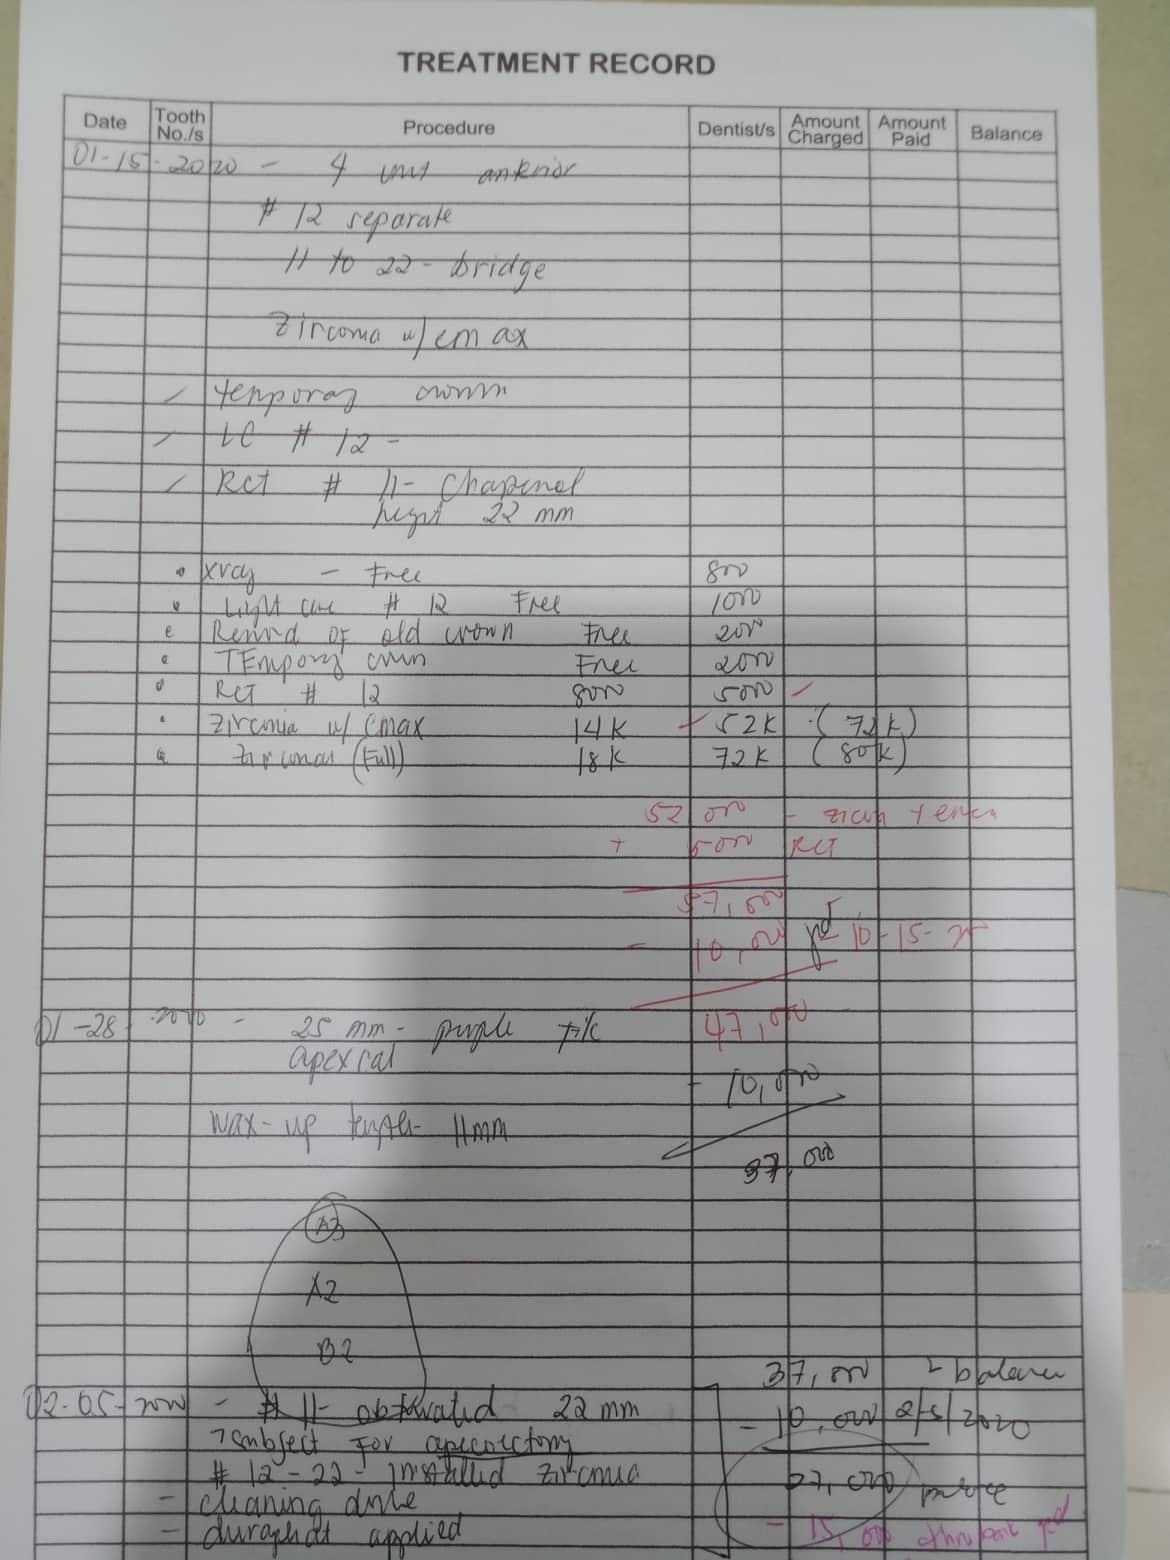 TREATMENT RECORD
Date Tooth No./s Procedure Dentist/s Amount Charged Amount Paid Balance
01-15-2020 - 4 unit anterior
# 12 separate
11 to 22 - bridge
Zirconia w/ emax
Temporary crown
LC # 12 -
RCT # 11-
22 mm
xray - Free 800
Light cure # 12 Free 1000
of old crown Free 2000
Temporary crown Free 2000
RCT # 12 8000 5000
Zirconia w/ Emax 14K 52K (72K)
(Full) 18K 72K (80K)
52 000 -
+ 5000 RCT
57,000
- 10,000 pd 10-15-
01-28 2020 - 25 mm - purple 47,000
apexcal
- 10,000
wax-up length- 11mm
37,000
A3
A2
B2
37,000 - balance
02-05-2020 - # 11- obturated 22 mm
- 10,000 2/5/2020
subject for apicoectomy
# 12-22- installed zirconia 27,000
- cleaning done
- duraphat applied - 15,000 pd